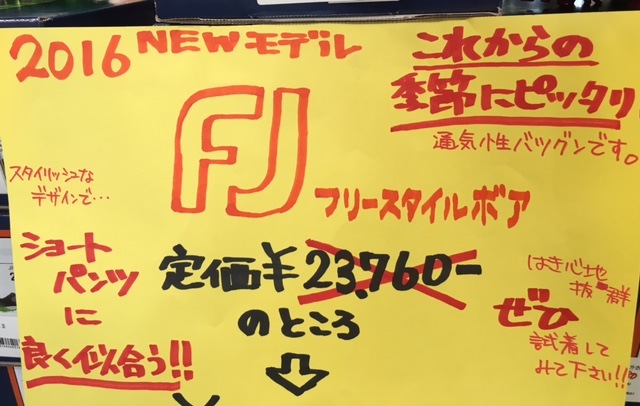 2016 NEWモデル
これからの
季節にピッタリ
通気性バツグンです。
FJ
フリースタイルボア
スタイリッシュな
デザインで…
ショート
パンツ
に
良く似合う!!
定価¥23.760-
のところ
はき心地
抜群
ぜひ
試着して
みて下さい!!